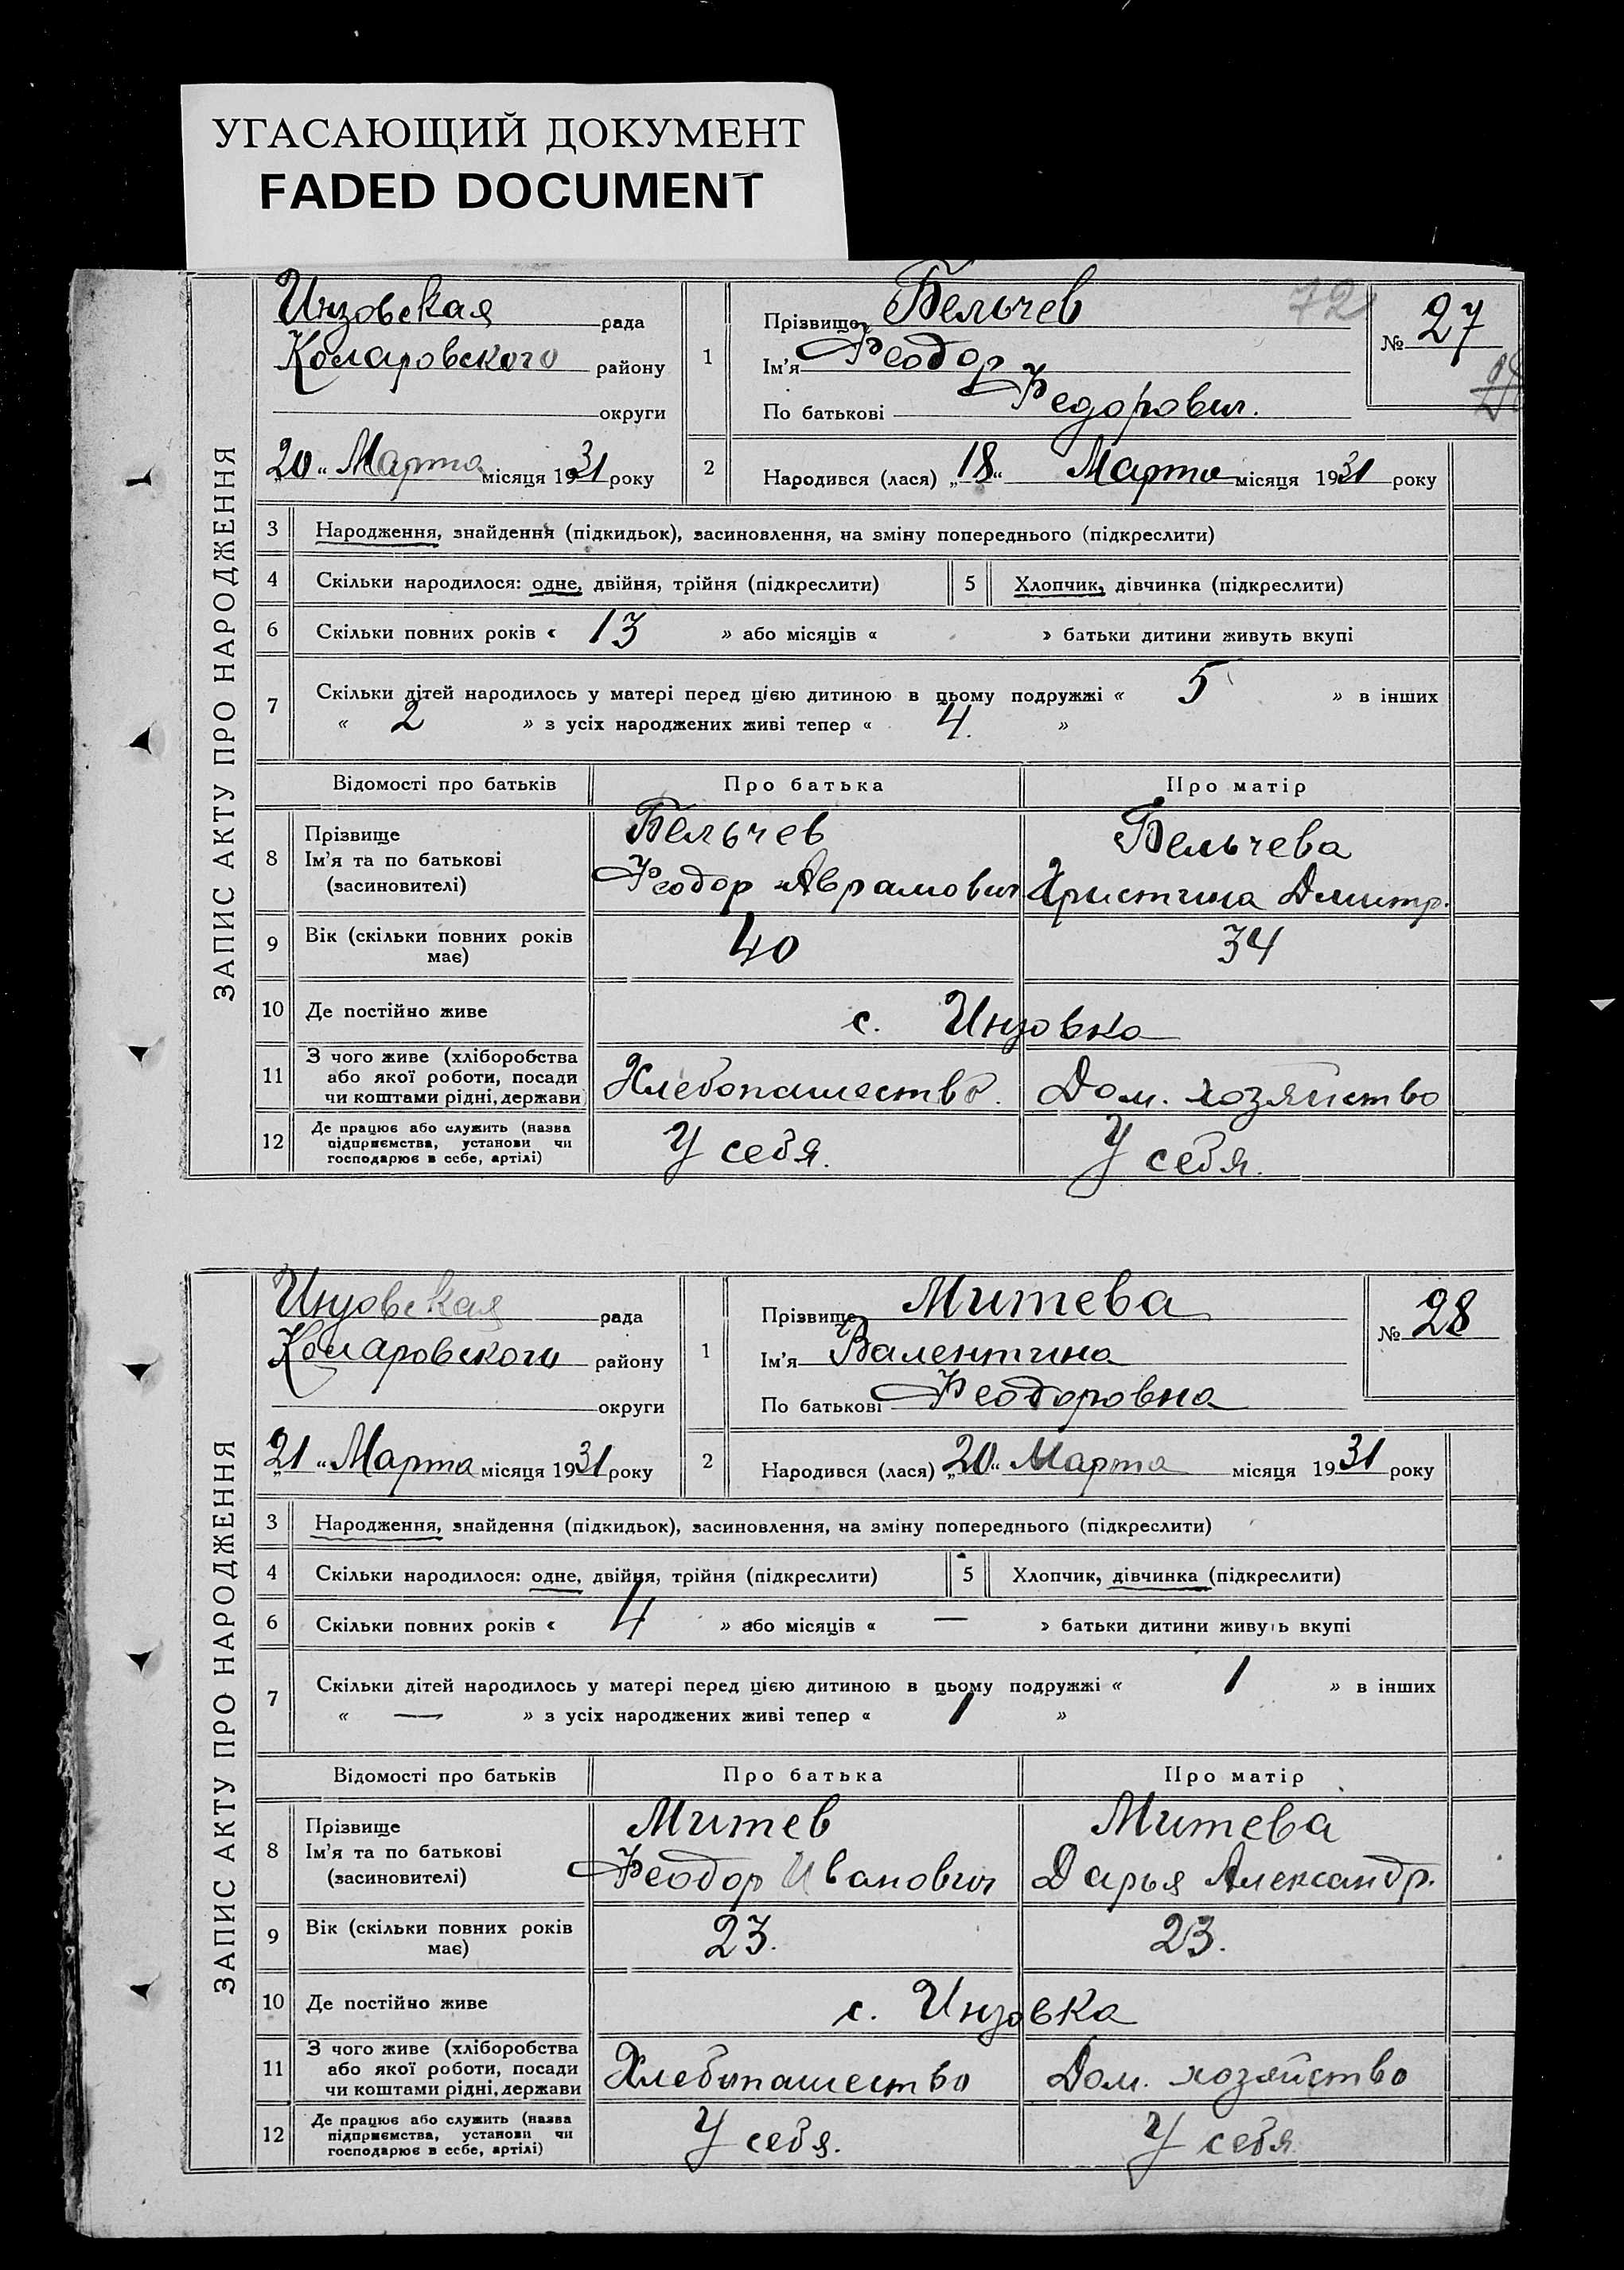 УГАСАЮЩИЙ ДОКУМЕНТ
FADED DOCUMENT
ЗАПИС АКТУ ПРО НАРОДЖЕННЯ
Инзовская рада
Комаровского району
округи
20 „ Марта місяця 1931 року
1
Прізвище Бельчев
Ім'я Феодор
По батькові Федорович.
72
№ 27
2
Народився (лася) „18“ Марта місяця 1931 року
3 Народження, знайдення (підкидьок), засиновлення, на зміну попереднього (підкреслити)
4 Скільки народилося: одне, двійня, трійня (підкреслити) 5 Хлопчик, дівчинка (підкреслити)
6 Скільки повних років « 13 » або місяців « » батьки дитини живуть вкупі
7 Скільки дітей народилось у матері перед цією дитиною в цьому подружжі « 5 » в інших
« 2 » з усіх народжених живі тепер « 4. »
Відомості про батьків Про батька Про матір
8 Прізвище Бельчев Бельчева
Ім'я та по батькові Феодор Аврамович Христина Дмитр.
(засиновителі)
9 Вік (скільки повних років має) 40 34
10 Де постійно живе с. Инзовка
11 З чого живе (хліборобства
або якої роботи, посади Хлебопашество. Дом. хозяйство
чи коштами рідні, держави
12 Де працює або служить (назва
підприємства, установи чи У себя. У себя.
господарює в себе, артілі)
ЗАПИС АКТУ ПРО НАРОДЖЕННЯ
Инзовская рада
Комаровского району
округи
„21 “ Марта місяця 1931 року
1
Прізвище Митева
Ім'я Валентина
По батькові Феодоровна
№ 28
2
Народився (лася) „20“ Марта місяця 1931 року
3 Народження, знайдення (підкидьок), засиновлення, на зміну попереднього (підкреслити)
4 Скільки народилося: одне, двійня, трійня (підкреслити) 5 Хлопчик, дівчинка (підкреслити)
6 Скільки повних років « 4 » або місяців « — » батьки дитини живуть вкупі
7 Скільки дітей народилось у матері перед цією дитиною в цьому подружжі « 1 » в інших
« — » з усіх народжених живі тепер « 1 »
Відомості про батьків Про батька Про матір
8 Прізвище Митев Митева
Ім'я та по батькові Феодор Иванович Дарья Александр.
(засиновителі)
9 Вік (скільки повних років має) 23. 23.
10 Де постійно живе с. Инзовка
11 З чого живе (хліборобства
або якої роботи, посади Хлебопашество Дом. хозяйство
чи коштами рідні, держави
12 Де працює або служить (назва
підприємства, установи чи У себя. У себя
господарює в себе, артілі)